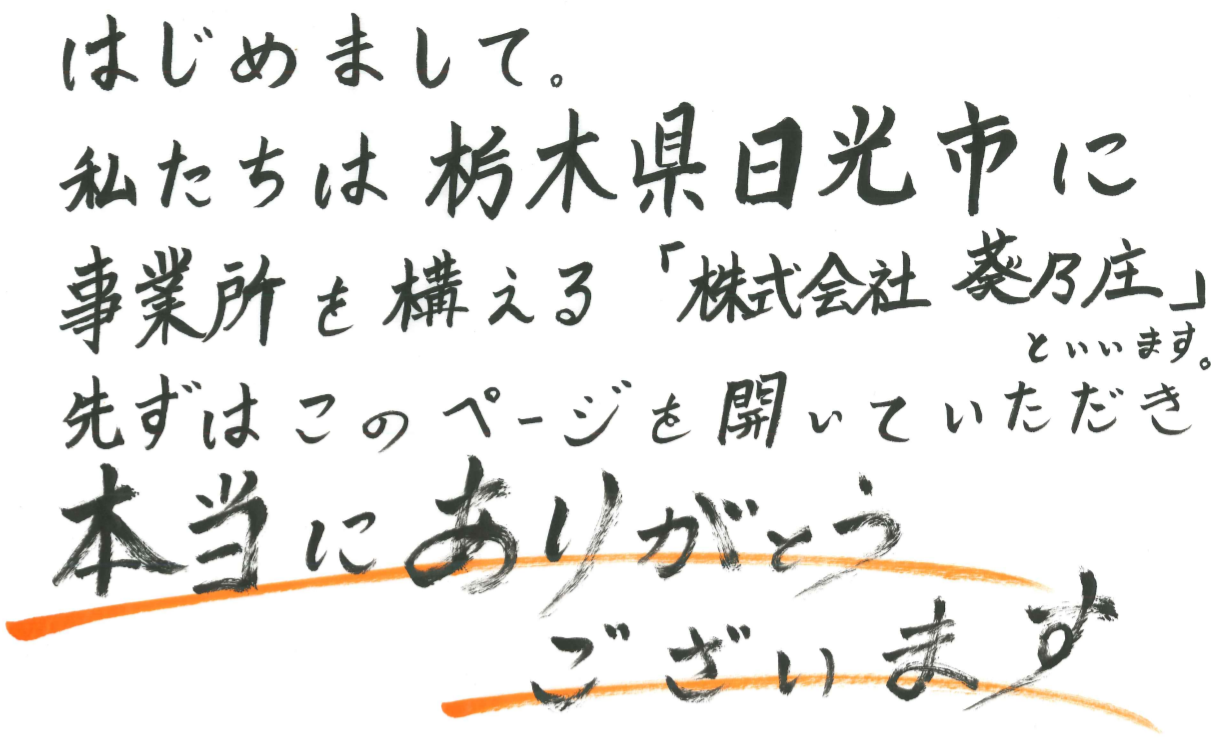 はじめまして。
私たちは栃木県日光市に
事業所を構える「株式会社 葵乃庄」
といいます。
先ずはこのページを開いていただき
本当にありがとう
ございます